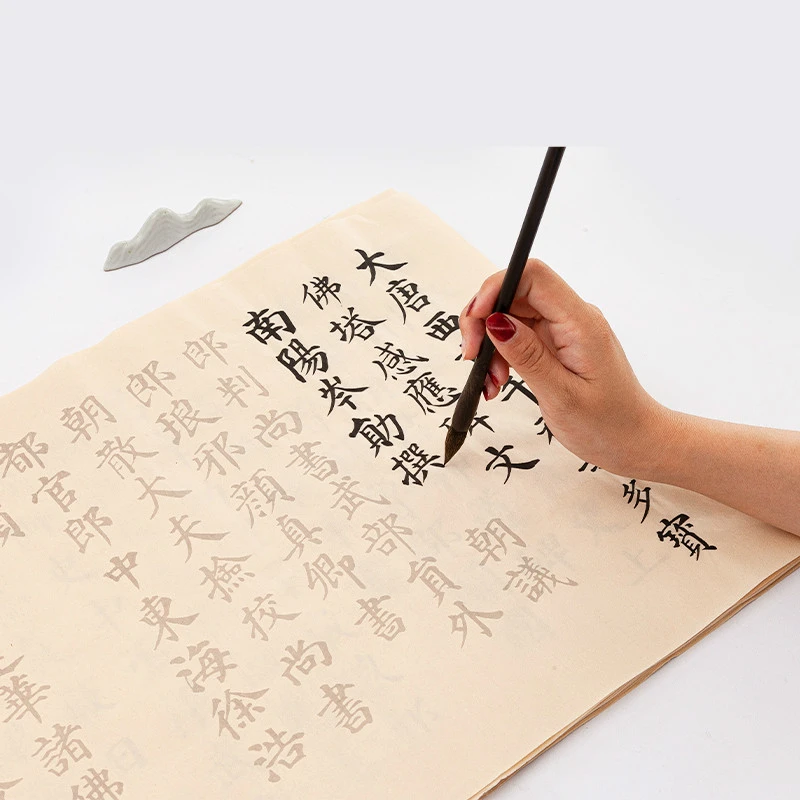 大唐西千多寶
佛塔感應文
南陽岑勛撰朝議
郎判尚書武部員外
郎琅邪顏真卿書
朝散大夫撿校尚書
都官郎中東海徐浩
華諸佛